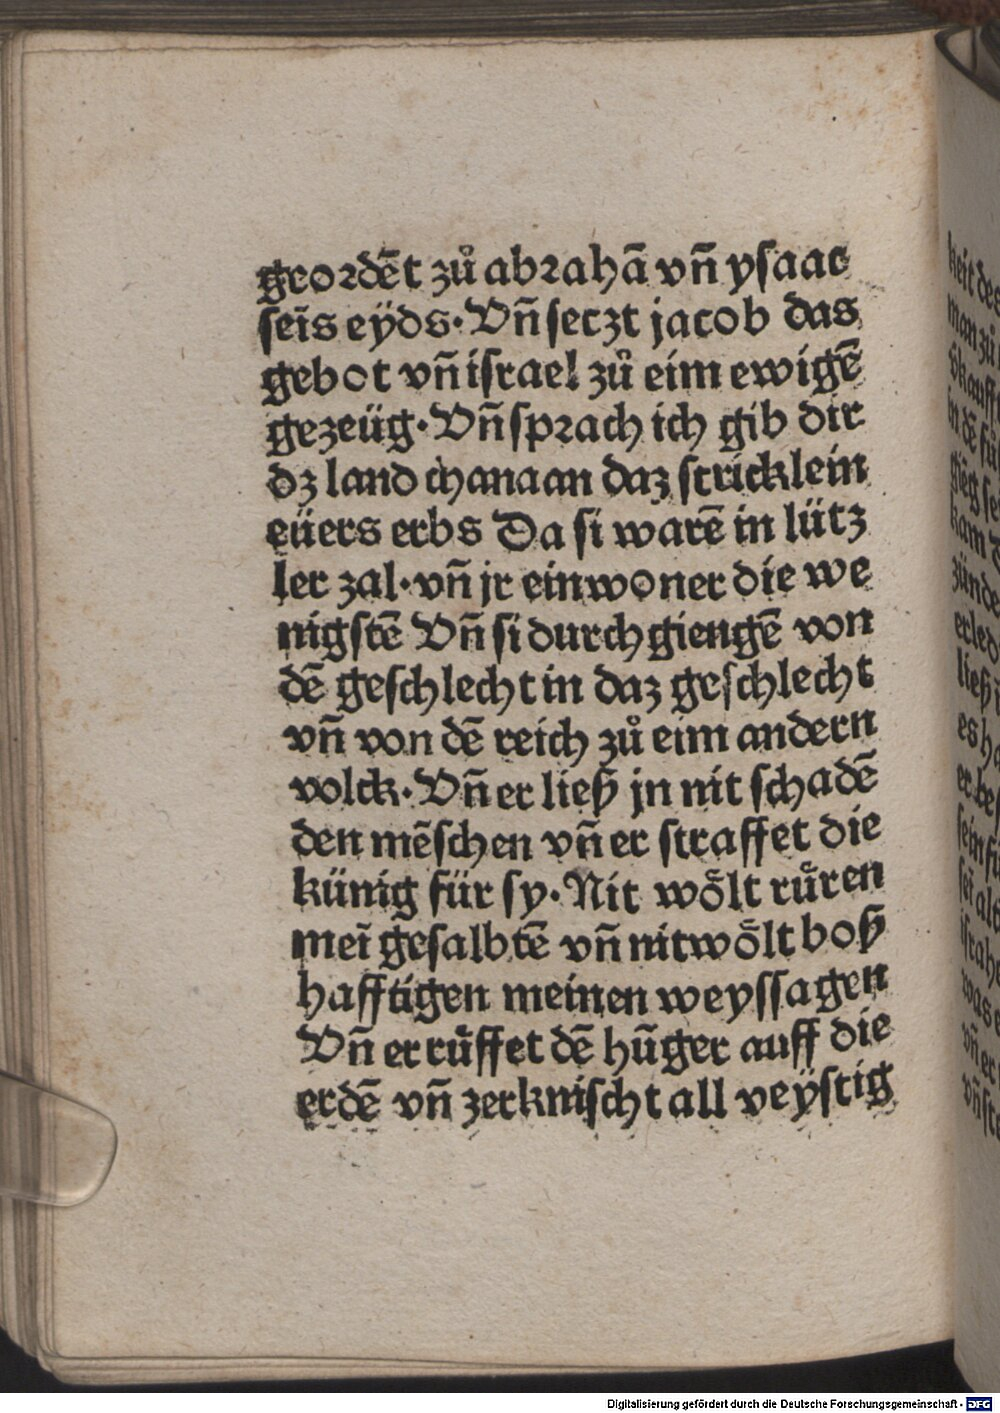 geordēt zů abrahā vn̄ ysaac
seīs eÿds·Vn̄ seczt jacob das
gebot vn̄ israel zů eim ewigē
gezeüg·Vn̄ sprach ich gib dir
dz land chanaan daz stricklein
eüers erbs Da si warē in lütz
ler zal·vn̄ jr einwoner die we
nigstē Vn̄ si durch giengē von
dē geschlecht in daz geschlecht
vn̄ von dē reich zů eim andern
volck·Vn̄ er ließ jn nit schadē
den mēschen vn̄ er straffet die
künig für sy·Nit woͤlt ruͤren
meī gesalbtē vn̄ nit woͤlt boß
hafftigen meinen weyssagen
Vn̄ er ruͤffet dē hūger auff die
erdē vn̄ zerknischt all veÿstig
Digitalisierung gefördert durch die Deutsche Forschungsgemeinschaft - DFG